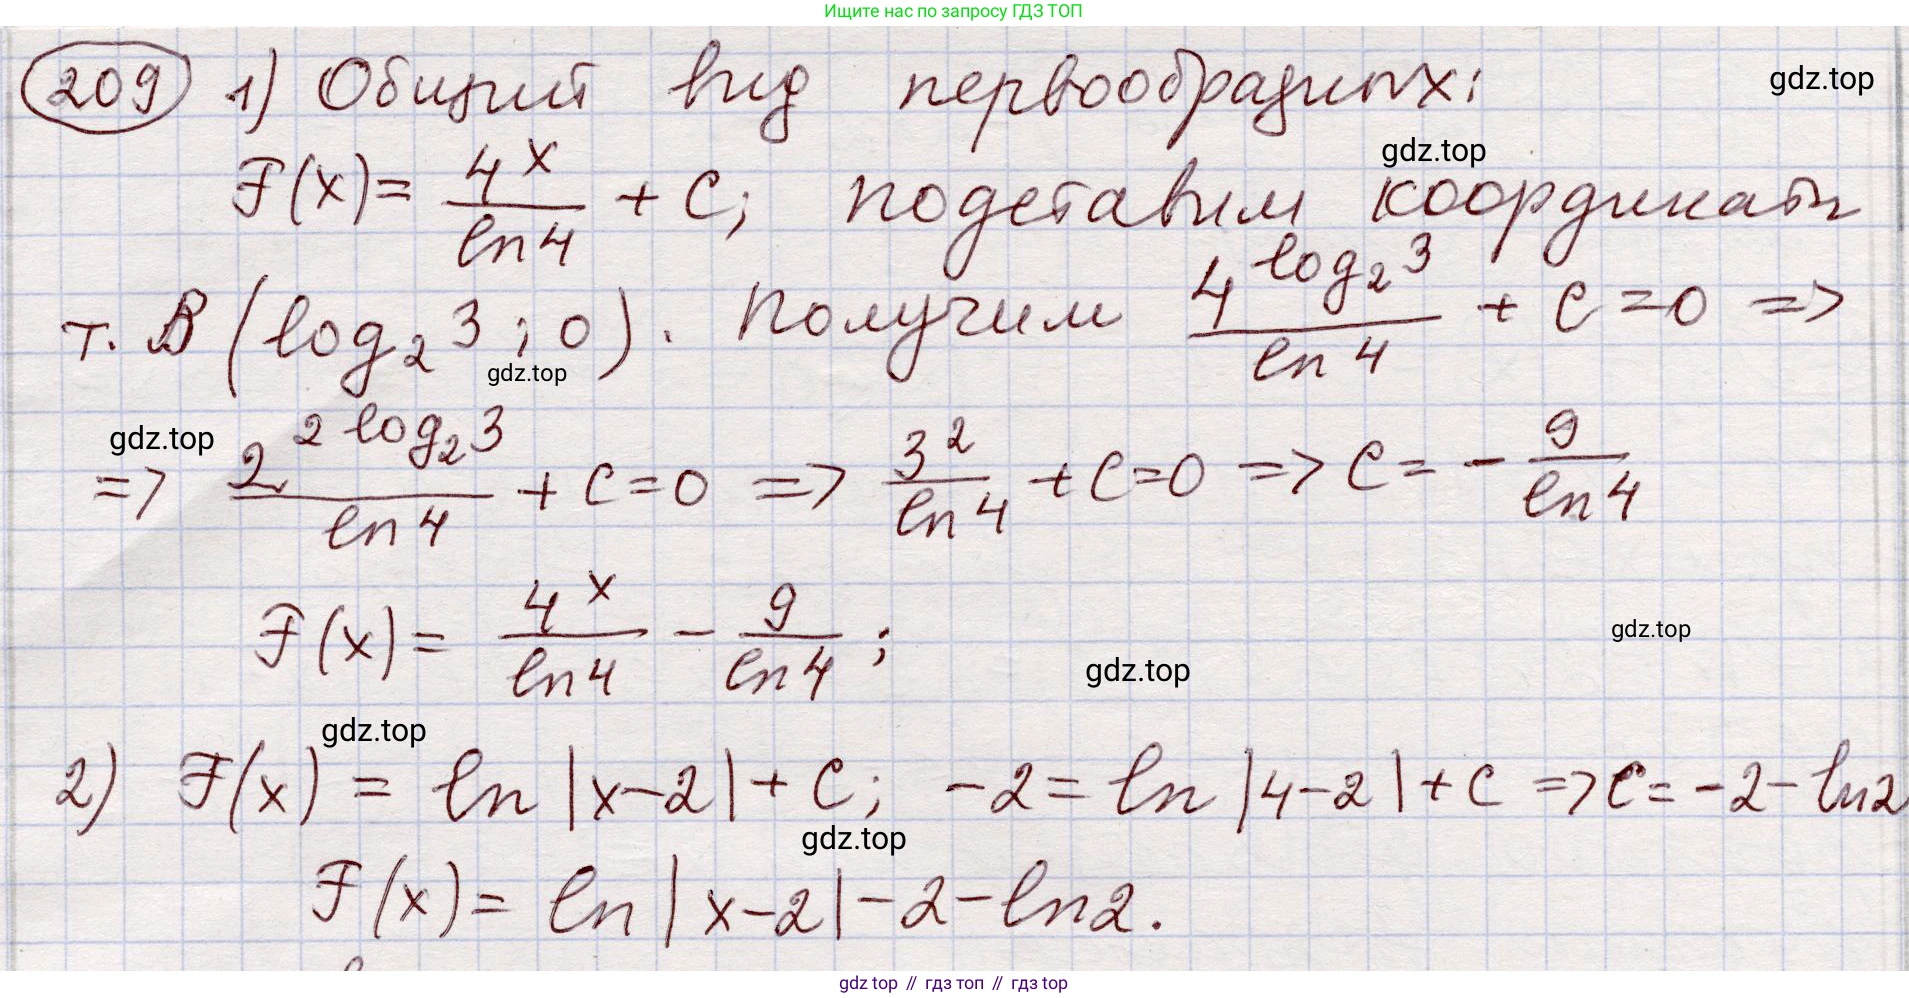 Ищите нас по запросу ГДЗ ТОП
209 1) Общий вид первообразных: gdz.top
gdz.top
F(x) = 4^x / ln 4 + C; подставим координаты
т. B (log₂ 3 ; 0). Получим 4^(log₂ 3) / ln 4 + C = 0 =>
gdz.top
gdz.top
=> 2^(2 log₂ 3) / ln 4 + C = 0 => 3² / ln 4 + C = 0 => C = - 9 / ln 4
F(x) = 4^x / ln 4 - 9 / ln 4 ;
gdz.top
gdz.top
gdz.top
2) F(x) = ln |x-2| + C; -2 = ln |4-2| + C => C = -2 - ln 2
gdz.top
F(x) = ln |x-2| - 2 - ln 2.
gdz top // гдз топ // гдз top